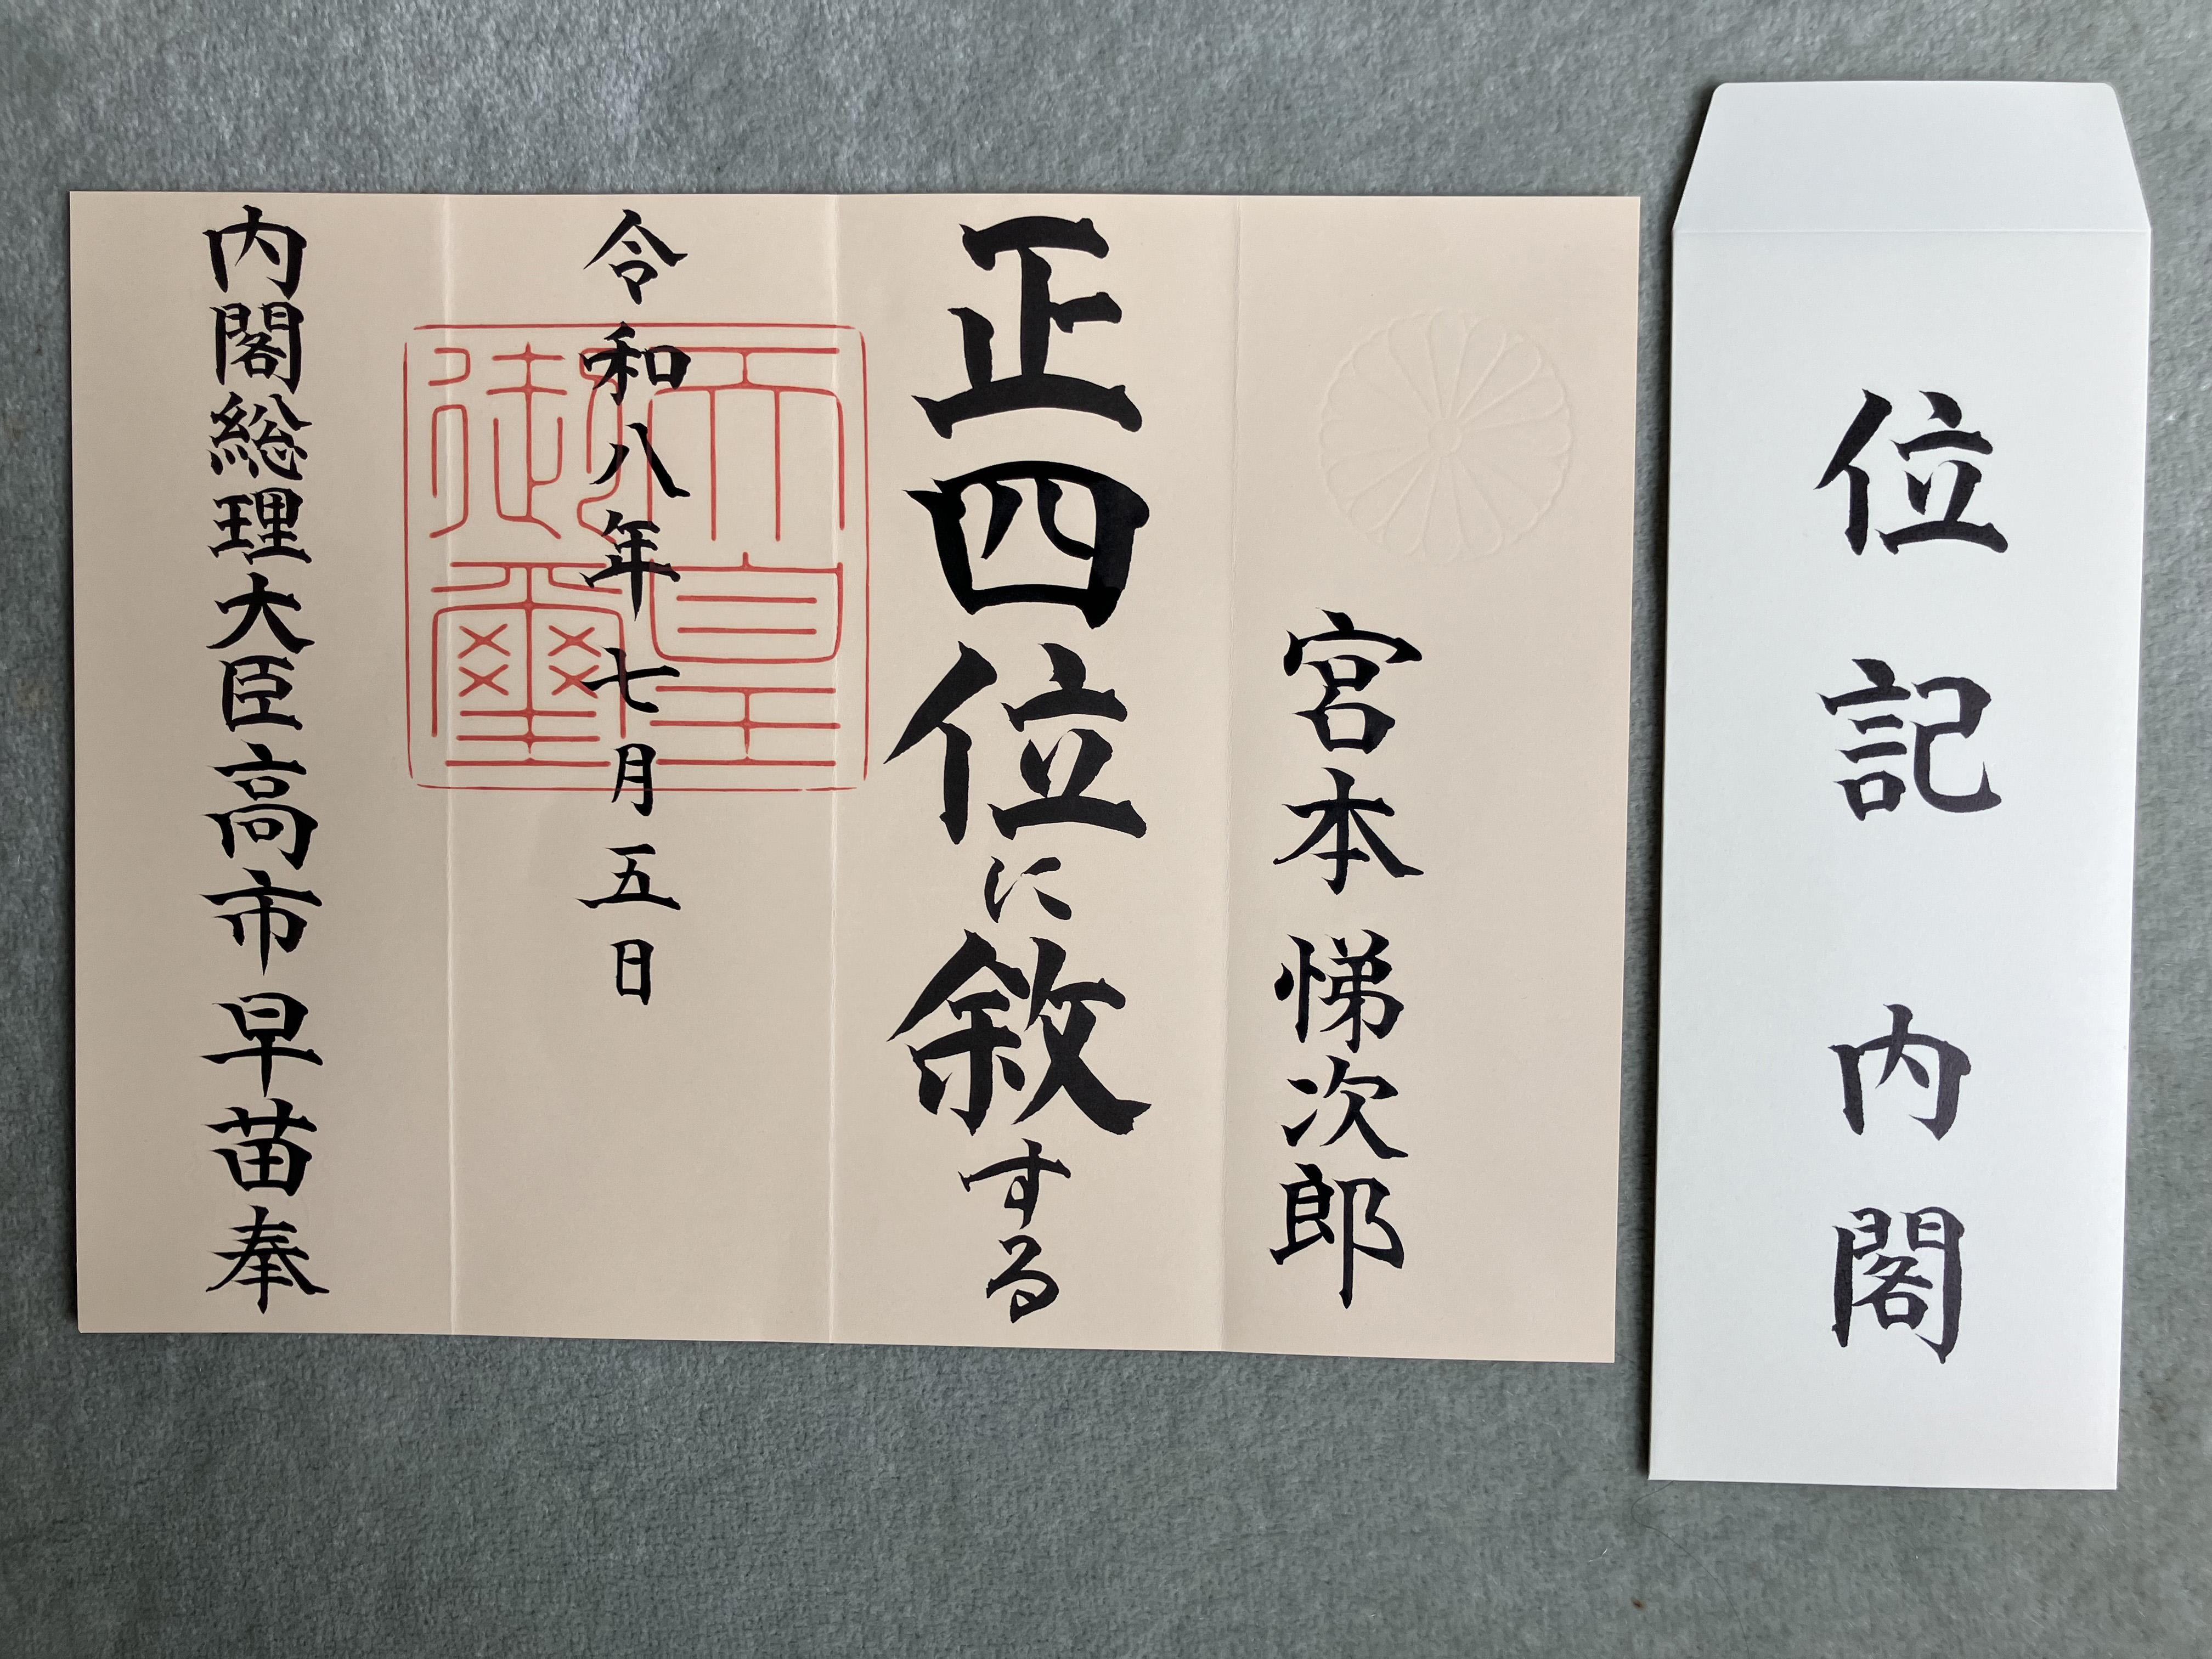 宮本悌次郎
正四位に敘する
令和八年七月五日
内閣総理大臣高市早苗奉
天皇
御璽
位記 内閣